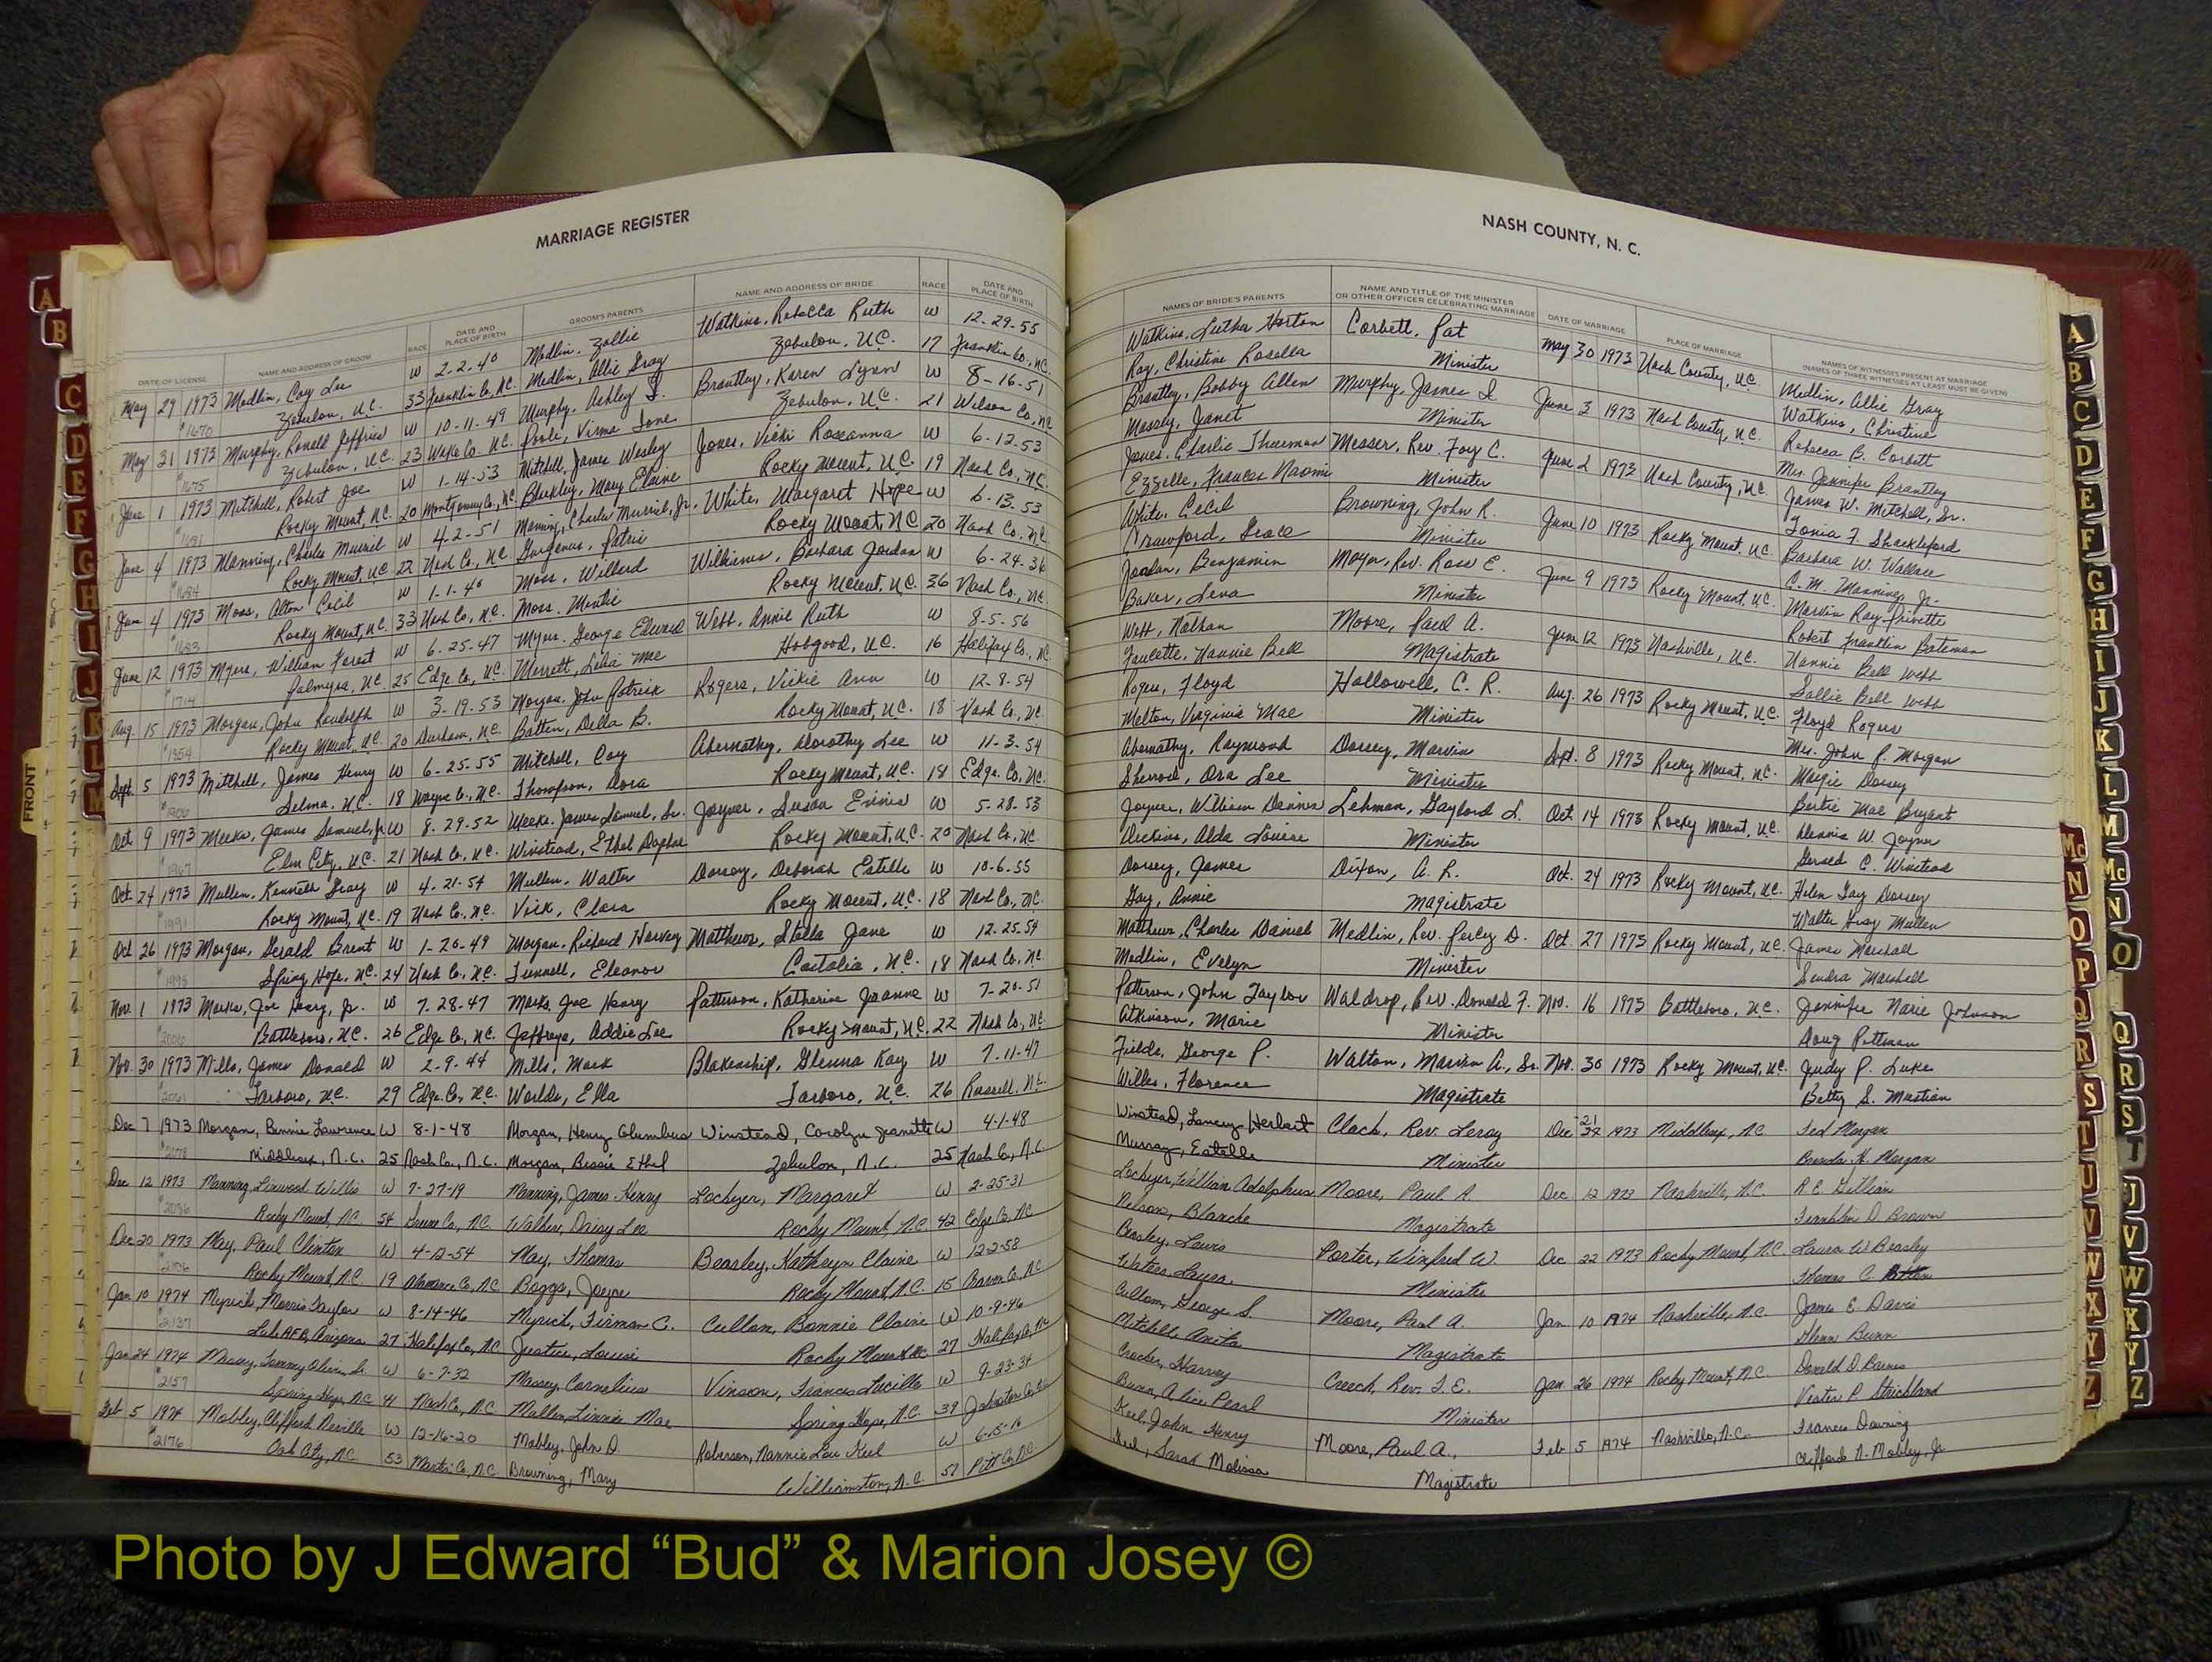 MARRIAGE REGISTER
NASH COUNTY, N. C.
DATE OF LICENSE NAME AND ADDRESS OF GROOM RACE DATE AND PLACE OF BIRTH GROOM'S PARENTS NAME AND ADDRESS OF BRIDE RACE DATE AND PLACE OF BIRTH
NAMES OF BRIDE'S PARENTS NAME AND TITLE OF THE MINISTER OR OTHER OFFICER CELEBRATING MARRIAGE DATE OF MARRIAGE PLACE OF MARRIAGE NAMES OF WITNESSES PRESENT AT MARRIAGE (NAMES OF THREE WITNESSES AT LEAST MUST BE GIVEN)
May 29 1973 Medlin, Coy Lee W 2-2-40 Medlin, Zollie Watkins, Rebecca Ruth W 12-29-55 Watkins, Luther Horton Corbett, Pat May 30 1973 Nash County, N.C. Medlin, Allie Gray
#1670 Zebulon, N.C. 33 Franklin Co, N.C. Medlin, Allie Gray Zebulon, N.C. 17 Franklin Co., N.C. Ray, Christine Rosella Minister Watkins, Christine
Rebecca B. Corbett
May 31 1973 Murphy, Ronald Jeffries W 10-11-49 Murphy, Ashley I. Brantley, Karen Lynn W 8-16-51 Brantley, Bobby Allen Murphy, James I. June 3 1973 Nash County, N.C. Mrs. Jennifer Brantley
#1675 Zebulon, N.C. 23 Wake Co. N.C. Poole, Virma Ione Zebulon, N.C. 21 Wilson Co, N.C. Massey, Janet Minister
June 1 1973 Mitchell, Robert Joe W 1-14-53 Mitchell, James Wesley Jones, Vicki Roseanna W 6-12-53 Jones, Charlie Thurman Messer, Rev. Foy C. June 2 1973 Nash County, N.C. James W. Mitchell, Sr.
#1681 Rocky Mount, N.C. 20 Montgomery Co, N.C. Blackley, Mary Elaine Rocky Mount, N.C. 19 Nash Co., N.C. Ezzelle, Frances Naomi Minister Tonia F. Shackleford
Barbara W. Wallace
June 4 1973 Manning, Charles Murriel W 4-2-51 Manning, Charles Murriel, Jr. White, Margaret Hope W 6-13-53 White, Cecil Browning, John R. June 10 1973 Rocky Mount, N.C. C. M. Manning, Jr.
#1684 Rocky Mount, N.C. 22 Nash Co., N.C. Gurganus, Patric Rocky Mount, N.C. 20 Nash Co., N.C. Crawford, Grace Minister Marvin Ray Privette
June 4 1973 Moss, Alton Cecil W 1-1-40 Moss, Willard Williams, Barbara Jordan W 6-24-36 Jordan, Benjamin Mayer, Rev. Ross E. June 9 1973 Rocky Mount, N.C. Robert Franklin Bateman
#1683 Rocky Mount, N.C. 33 Nash Co., N.C. Moss, Mintie Rocky Mount, N.C. 36 Nash Co., N.C. Baker, Lena Minister
June 12 1973 Myers, William Forest W 6-25-47 Myers, George Edward Webb, Annie Ruth W 8-5-56 Webb, Nathan Moore, Paul A. June 12 1973 Nashville, N.C. Nannie Bell Webb
#1714 Palmyra, N.C. 25 Edge. Co., N.C. Merrett, Lelia Mae Hobgood, N.C. 16 Halifax Co., N.C. Faulette, Nannie Bell Magistrate Sallie Bell Webb
Aug. 15 1973 Morgan, John Randolph W 3-19-53 Morgan, John Patrick Rogers, Vickie Ann W 12-8-54 Rogers, Floyd Hallowell, C. R. Aug. 26 1973 Rocky Mount, N.C. Floyd Rogers
#1854 Rocky Mount, N.C. 20 Durham, N.C. Batten, Della B. Rocky Mount, N.C. 18 Nash Co., N.C. Melton, Virginia Mae Minister Mrs. John P. Morgan
Sept. 5 1973 Mitchell, James Henry W 6-25-55 Mitchell, Coy Abernathy, Dorothy Lee W 11-3-54 Abernathy, Raymond Dorsey, Marvin Sept. 8 1973 Rocky Mount, N.C. Margie Dorsey
Selma, N.C. 18 Wayne Co., N.C. Thompson, Nora Rocky Mount, N.C. 18 Edge. Co, N.C. Sherrod, Ora Lee Minister Bertie Mae Bryant
Oct 9 1973 Meeks, James Samuel, Jr. W 8-29-52 Meeks, James Samuel, Sr. Joyner, Susan Ennis W 5-28-53 Joyner, William Dennis Lehman, Gaylord L. Oct 14 1973 Rocky Mount, N.C. Dennis W. Joyner
#1967 Elm City, N.C. 21 Nash Co., N.C. Winstead, Ethel Daphne Rocky Mount, N.C. 20 Nash Co., N.C. Dickens, Alda Louise Minister Gerald C. Winstead
Oct. 24 1973 Mullen, Kenneth Gray W 4-21-54 Mullen, Walter Dorsey, Deborah Estelle W 10-6-55 Dorsey, James Dixon, A. R. Oct. 24 1973 Rocky Mount, N.C. Helen Gay Dorsey
#1991 Rocky Mount, N.C. 19 Nash Co., N.C. Vick, Clara Rocky Mount, N.C. 18 Nash Co., N.C. Gay, Annie Magistrate Walter Gray Mullen
Oct 26 1973 Morgan, Gerald Brent W 1-20-49 Morgan, Richard Harvey Matthews, Stella Jane W 12-25-54 Matthews, Charles Daniel Medlin, Rev. Percy D. Oct. 27 1973 Rocky Mount, N.C. James Marshall
#1998 Spring Hope, N.C. 24 Nash Co., N.C. Tunnell, Eleanor Castalia, N.C. 18 Nash Co., N.C. Medlin, Evelyn Minister Sandra Marshall
Nov. 1 1973 Marks, Joe Henry, Jr. W 7-28-47 Marks, Joe Henry Patterson, Katherine Joanne W 7-20-51 Patterson, John Taylor Waldrop, Rev. Donald F. Nov. 16 1973 Battleboro, N.C. Jennifer Marie Johnson
#2006 Battleboro, N.C. 26 Edge. Co., N.C. Jeffreys, Addie Lee Rocky Mount, N.C. 22 Nash Co., N.C. Atkinson, Marie Minister Doug Pittman
Nov. 30 1973 Mills, James Donald W 2-9-44 Mills, Mack Blakenship, Glenna Kay W 7-11-47 Fields, George P. Walton, Marvin A., Sr. Nov. 30 1973 Rocky Mount, N.C. Judy P. Luke
#2061 Tarboro, N.C. 29 Edge. Co., N.C. Worlds, Ella Tarboro, N.C. 26 Willes, Florence Magistrate Betty S. Mustian
Dec 7 1973 Morgan, Bennie Lawrence W 8-1-48 Morgan, Henry Columbus Winstead, Carolyn Jeanette W 4-1-48 Winstead, Lancey Herbert Clack, Rev. Leroy Dec 21 1973 Middlesex, N.C. Ted Morgan
#2078 Middlesex, N.C. 25 Nash Co., N.C. Morgan, Bessie Ethel Zebulon, N.C. 25 Nash Co., N.C. Murray, Estelle Minister Brenda H. Morgan
Dec 12 1973 Manning, Linwood Willis W 7-27-19 Manning, James Henry Lockyer, Margaret W 2-25-31 Lockyer, William Adolphus Moore, Paul A. Dec. 12 1973 Nashville, N.C. R.E. Gillian
#2086 Rocky Mount, N.C. 54 Greene Co., N.C. Walker, Daisy Lee Rocky Mount, N.C. 42 Edge Co, N.C. Nelson, Blanche Magistrate Franklin D. Brown
Dec 20 1973 May, Paul Clinton W 4-12-54 May, Thomas Beasley, Kathryn Claire W 12-2-58 Beasley, Lewis Porter, Winfred W. Dec 22 1973 Rocky Mount, N.C. Laura W. Beasley
Rocky Mount, N.C. 19 Alamance Co., N.C. Boggs, Joyce Rocky Mount, N.C. 15 Craven Co, N.C. Waters, Laura Minister Thomas C.
Jan 10 1974 Myrick, Morris Taylor W 8-14-46 Myrick, Firman C. Cullom, Bonnie Claire W 10-9-46 Cullom, George S. Moore, Paul A. Jan 10 1974 Nashville, N.C. James E. Davis
#2137 Luke AFB, Arizona 27 Halifax Co, N.C. Justice, Louise Rocky Mount, N.C. 27 Halifax Co, N.C. Mitchell, Anita Magistrate Glenn Bunn
Jan 24 1974 Massey, Tommy Olivin, Sr. W 6-7-32 Massey, Cornelius Vinson, Frances Lucille W 9-23-34 Crocker, Harvey Creech, Rev. T. E. Jan 26 1974 Rocky Mount, N.C. Donald D. Barnes
#2157 Spring Hope, N.C. 41 Nash Co., N.C. Mullen, Linnie Mae Spring Hope, N.C. 39 Johnston Co, N.C. Bunn, Alice Pearl Minister Vester P. Strickland
Feb 5 1974 Mobley, Clifford Neville W 12-16-20 Mobley, John D. Roberson, Nannie Lou Keel W 6-15-16 Keel, John Henry Moore, Paul A., Feb 5 1974 Nashville, N.C. Frances Downing
#2176 Oak City, N.C. 53 Martin Co, N.C. Browning, Mary Williamston, N.C. 57 Pitt Co, N.C. Keel, Sarah Melissa Magistrate Clifford N. Mobley, Jr.
FRONT
A
B
C
D
E
F
G
H
I
J
K
L
M
A
B
C
D
E
F
G
H
I
J
K
L
M
Mc
N
O
Mc
N
O
P
Q
R
S
T
U
V
W
X
Y
Z
Q
R
S
T
J
V
W
K
Y
Z
Photo by J Edward “Bud” & Marion Josey ©